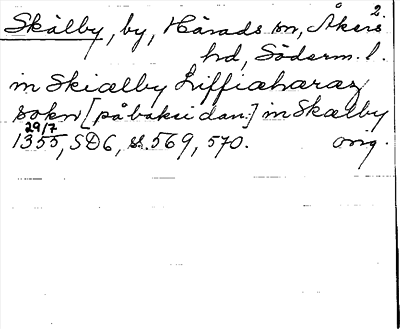 2.
Skälby, by, Härads sn, Åkers
hd, Söderm. l.
in Skiælby Liffiæharaz
sokn [på baksidan:] in Skælby
29/7
1355, SD6, s. 569, 570. orig.